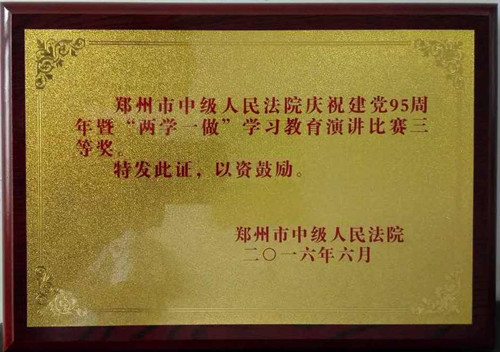 郑州市中级人民法院庆祝建党95周
年暨“两学一做”学习教育演讲比赛三
等奖。
特发此证，以资鼓励。
郑州市中级人民法院
二〇一六年六月